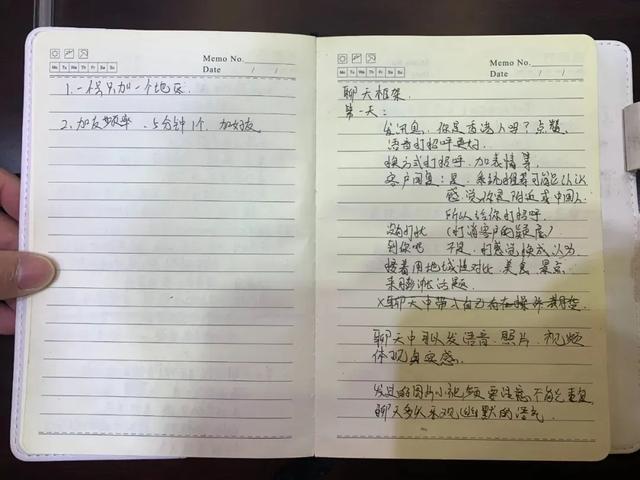 Memo No.
Mo Tu We Th Fr Sa Su
Date / /
1. 一号只加一个地区.
2. 加友频率 、5分钟1个, 加好友
Memo No.
Mo Tu We Th Fr Sa Su
Date / /
聊天框架.
第一天:
发讯息, 你是香港人吗? 点赞,
语音打招呼更好.
换方式打招呼. 加表情 等.
客户回复: 是. 系统推荐可能认识
感觉你是附近或中国人.
所以给你打招呼.
(打消客户的疑虑)
到你吧 不是, 打感觉换成以为
接着用地域性对比. 美食 景点.
来膨胀话题.
X聊天中带入自己
聊天中可以发语音. 照片. 视频
体现真实感.
发过的图片小视频要注意, 不能重复
聊天多以乐观,幽默的语气